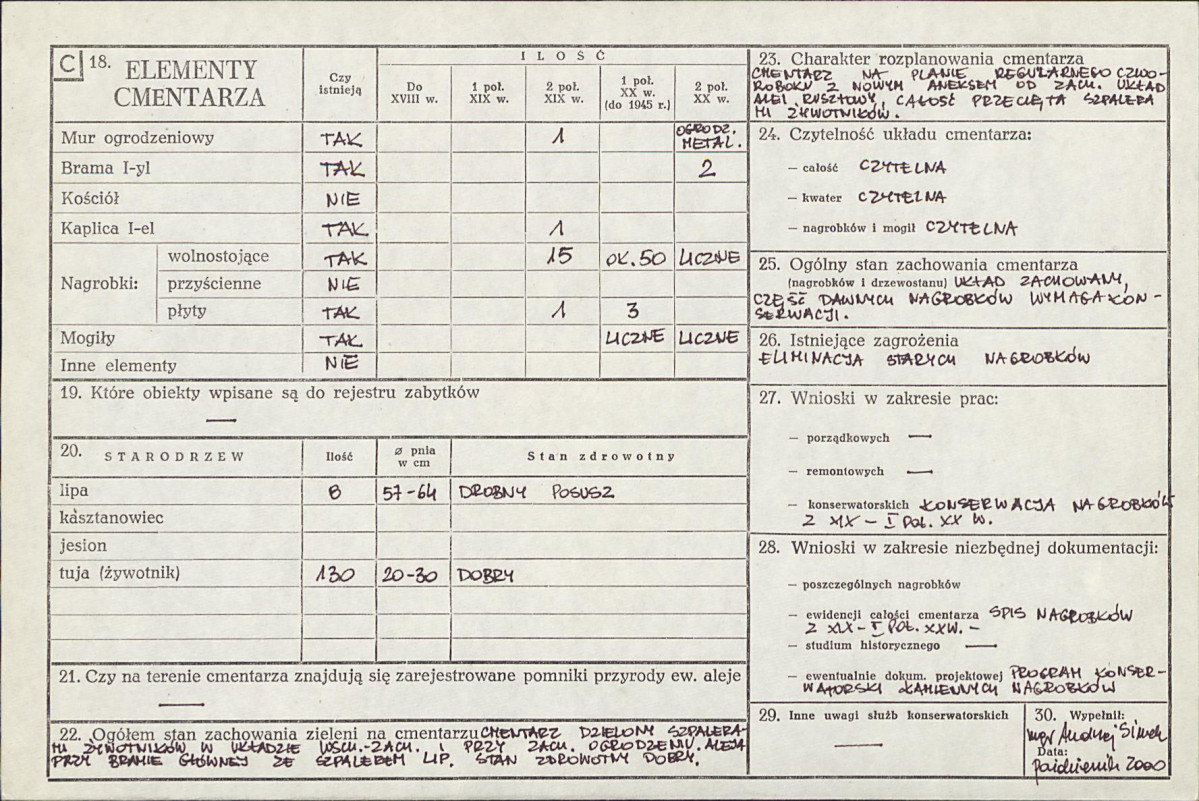 C 18. ELEMENTY CMENTARZA
Czy istnieją
ILOŚĆ
Do XVIII w.
1 poł. XIX w.
2 poł. XIX w.
1 poł. XX w. (do 1945 r.)
2 poł. XX w.
Mur ogrodzeniowy TAK 1 OGRODZ. METAL.
Brama I-yl TAK 2
Kościół NIE
Kaplica I-el TAK 1
Nagrobki:
wolnostojące TAK 15 OK. 50 LICZNE
przyścienne NIE
płyty TAK 1 3
Mogiły TAK LICZNE LICZNE
Inne elementy NIE
19. Które obiekty wpisane są do rejestru zabytków
—
20. STARODRZEW Ilość ø pnia w cm Stan zdrowotny
lipa 8 57-64 DROBNY POSUSZ
kasztanowiec
jesion
tuja (żywotnik) 130 20-30 DOBRY
21. Czy na terenie cmentarza znajdują się zarejestrowane pomniki przyrody ew. aleje
—
22. Ogółem stan zachowania zieleni na cmentarzu CMENTARZ DZIELONY SZPALERA-
MI ŻYWOTNIKÓW W UKŁADZIE WSCH.-ZACH. I PRZY ZACH. OGRODZENIU. ALEJA
PRZY BRAMIE GŁÓWNEJ ZE SZPALEREM LIP. STAN ZDROWOTNY DOBRY.
23. Charakter rozplanowania cmentarza
CMENTARZ NA PLANIE REGULARNEGO CZWO-
ROBOKU Z NOWYM ANEKSEM OD ZACH. UKŁAD
ALEI RUSZTOWY, CAŁOŚĆ PRZECIĘTA SZPALERA
MI ŻYWOTNIKÓW.
24. Czytelność układu cmentarza:
— całość CZYTELNA
— kwater CZYTELNA
— nagrobków i mogił CZYTELNA
25. Ogólny stan zachowania cmentarza
(nagrobków i drzewostanu) UKŁAD ZACHOWANY,
CZĘŚĆ DAWNYCH NAGROBKÓW WYMAGA KON-
SERWACJI.
26. Istniejące zagrożenia
ELIMINACJA STARYCH NAGROBKÓW
27. Wnioski w zakresie prac:
— porządkowych —
— remontowych —
— konserwatorskich KONSERWACJA NAGROBKÓW
Z XIX – I POŁ. XX W.
28. Wnioski w zakresie niezbędnej dokumentacji:
— poszczególnych nagrobków
— ewidencji całości cmentarza SPIS NAGROBKÓW
Z XIX – I POŁ. XX W. –
— studium historycznego —
— ewentualnie dokum. projektowej PROGRAM KONSER-
WATORSKI KAMIENNYCH NAGROBKÓW
29. Inne uwagi służb konserwatorskich
—
30. Wypełnił:
mgr Andrzej Simek
Data:
październik 2000